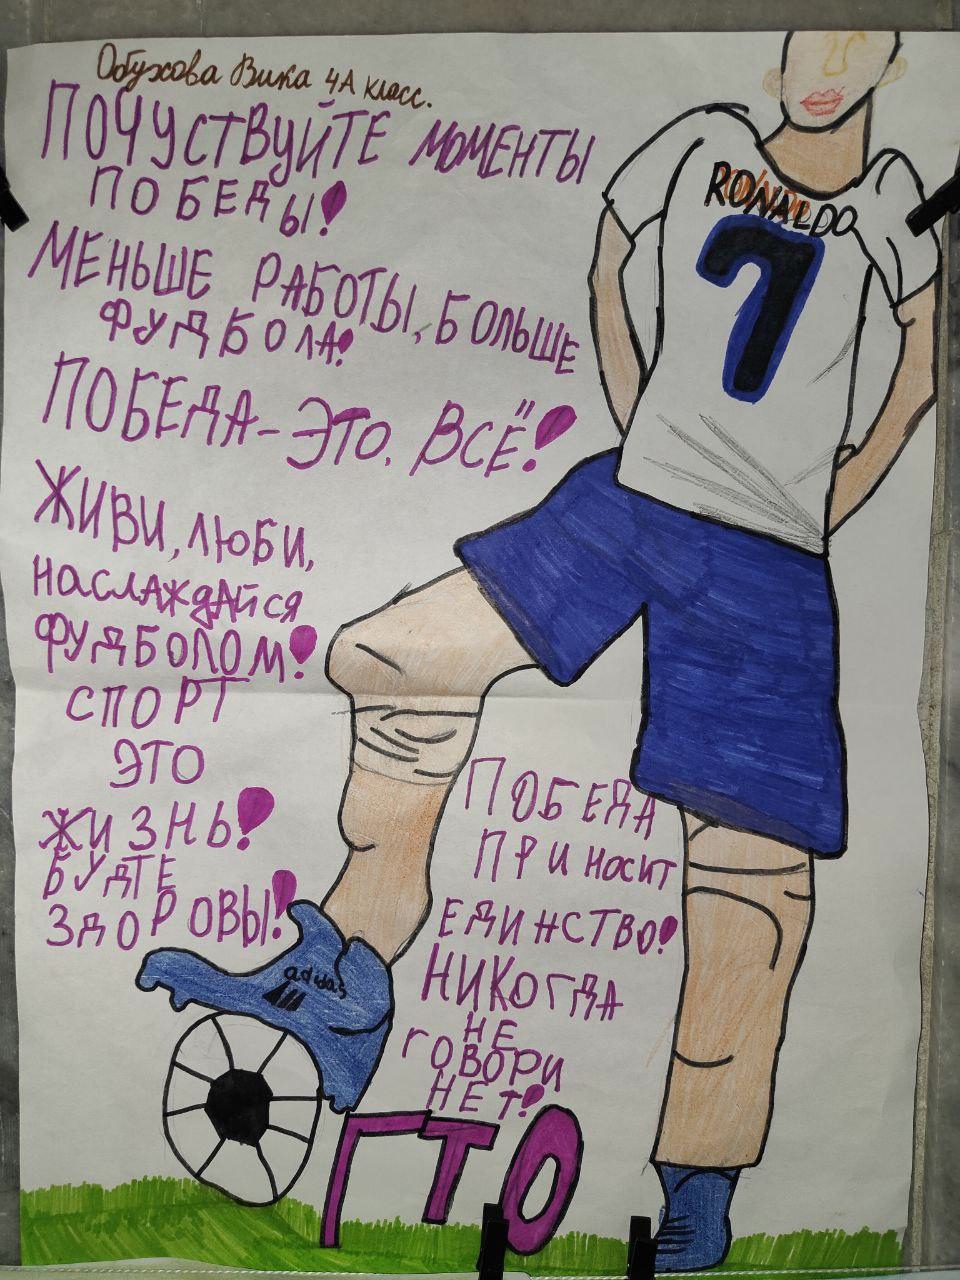 Обухова Вика 4А класс.
ПОЧУСТВУЙТЕ МОМЕНТЫ
ПОБЕДЫ!
МЕНЬШЕ РАБОТЫ, БОЛЬШЕ
ФУДБОЛА!
ПОБЕДА-ЭТО. ВСЁ!
ЖИВИ, ЛЮБИ,
НАСЛАЖДАЙСЯ
ФУДБОЛОМ!
СПОРТ
ЭТО
ЖИЗНЬ!
БУДТЕ
ЗДОРОВЫ!
RONALDO
7
ПОБЕДА
ПРИНОСИТ
ЕДИНСТВО!
НИКОГДА
НЕ
ГОВОРИ
НЕТ!
adidas
ГТО